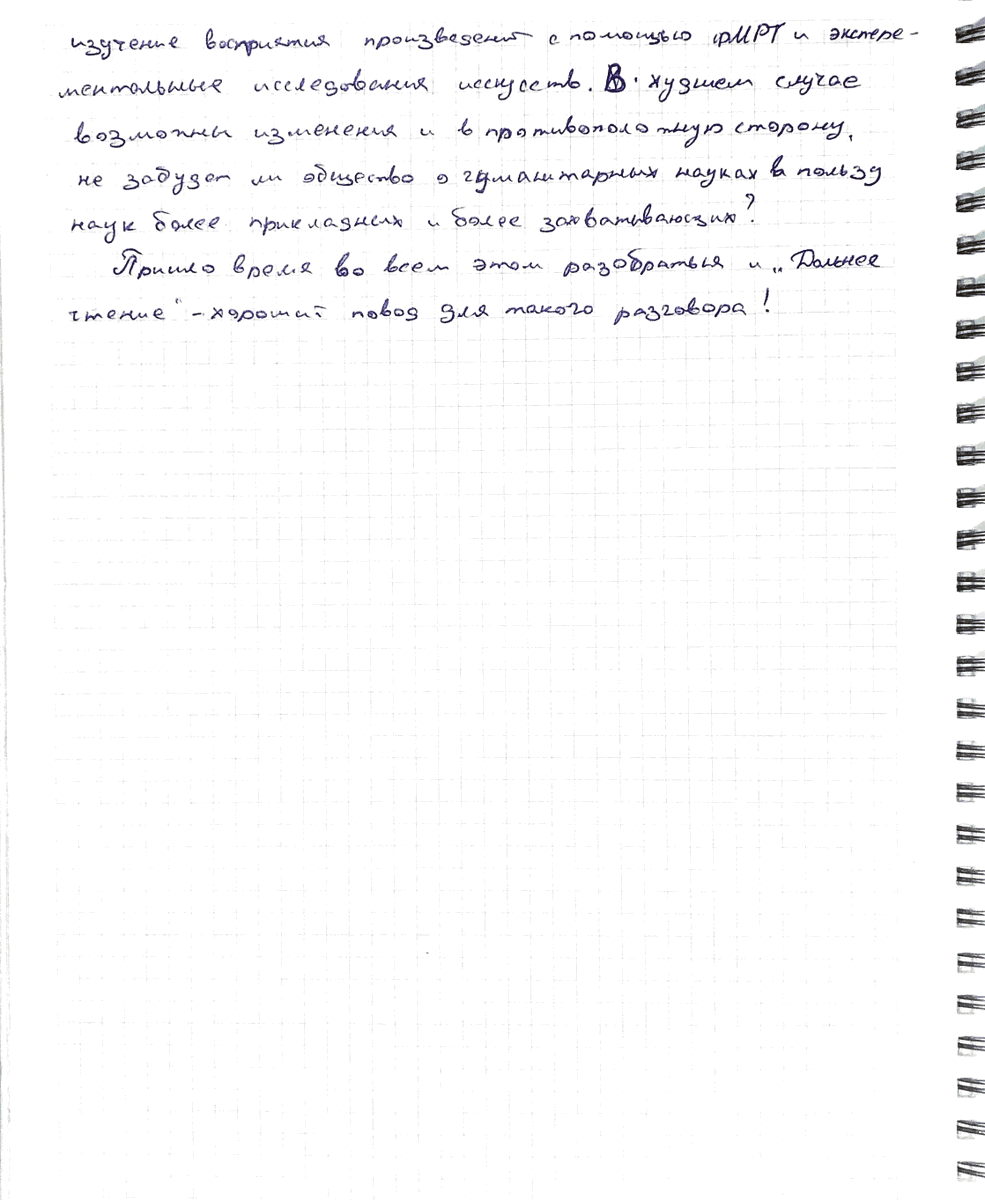 изучение восприятия произведений с помощью фМРТ и экспере-
ментальные исследования искусств. В худшем случае
возможны изменения и в противоположную сторону,
не забудет ли общество о гуманитарных науках в пользу
наук более прикладных и более захватывающих?
Пришло время во всем этом разобраться и „Дальнее
чтение“ - хороший повод для такого разговора!